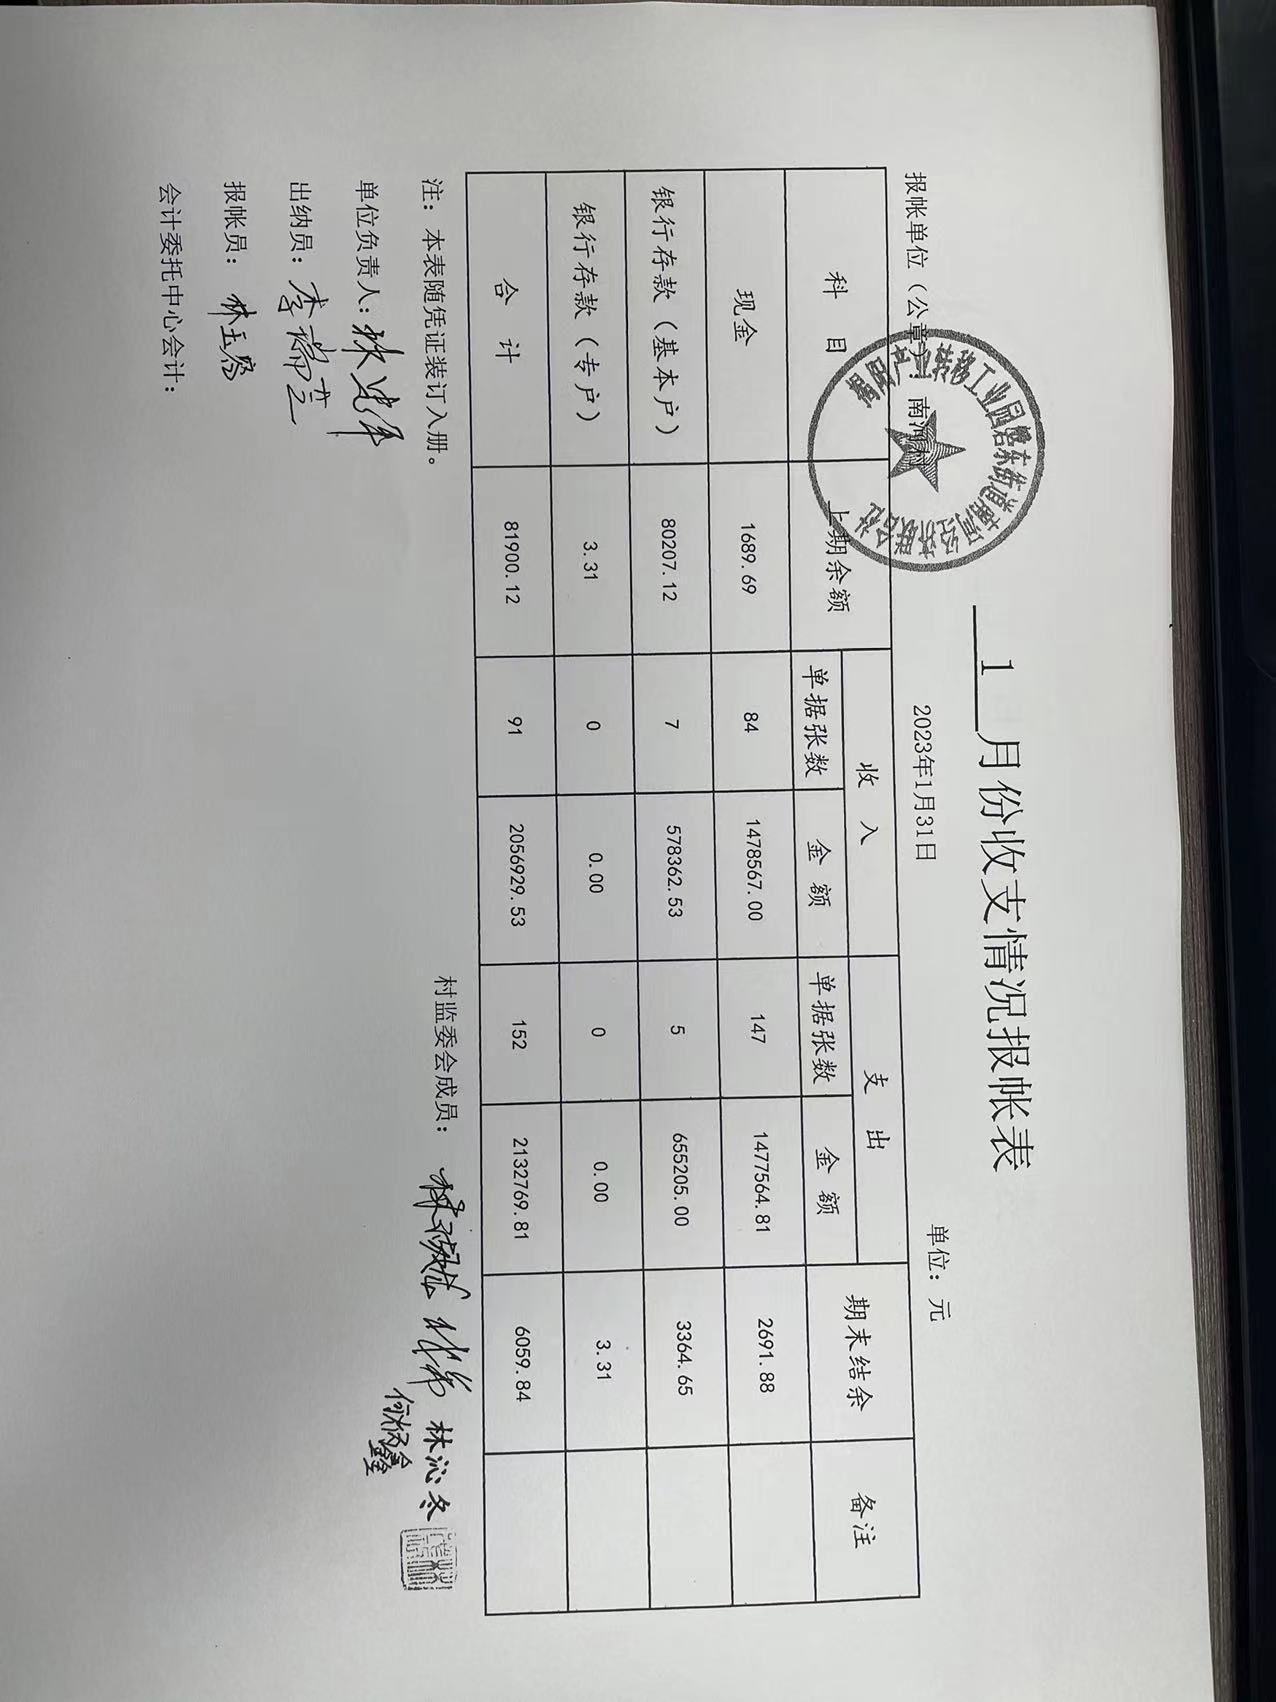 1 月份收支情况报帐表
报帐单位（公章）：南河村 2023年1月31日 单位：元
科 目 上期余额 收 入 支 出 期末结余 备注
单据张数 金 额 单据张数 金 额
现金 1689.69 84 1478567.00 147 1477564.81 2691.88
银行存款（基本户） 80207.12 7 578362.53 5 655205.00 3364.65
银行存款（专户） 3.31 0 0.00 0 0.00 3.31
合 计 81900.12 91 2056929.53 152 2132769.81 6059.84
注：本表随凭证装订入册。 村监委会成员： 林沁冬
单位负责人：
出纳员：
报帐员：
会计委托中心会计：